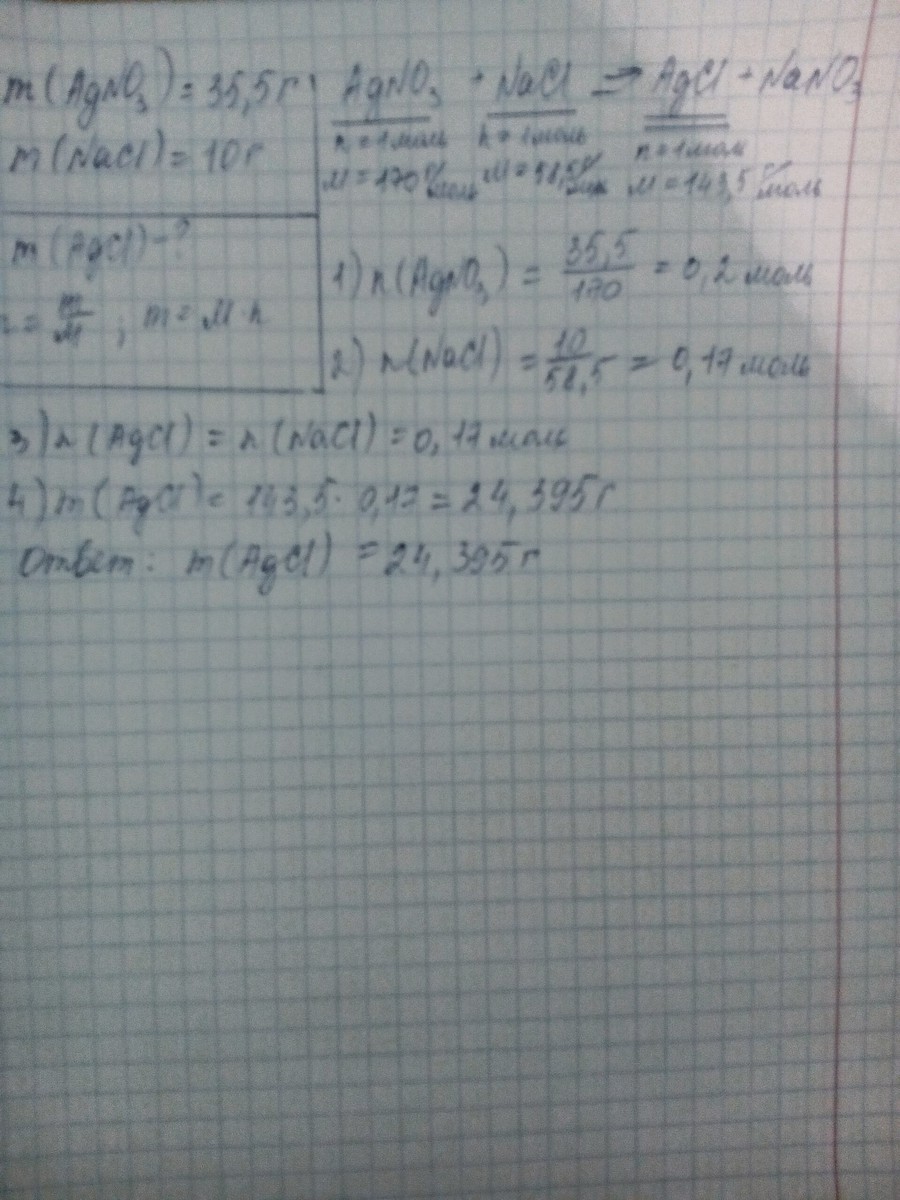 m(AgNO₃) = 35,5 г
m(NaCl) = 10 г
m(AgCl) - ?
n = m/M ; m = M · n
AgNO₃ + NaCl → AgCl + NaNO₃
n = 1 моль n = 1 моль n = 1 моль
M = 170 г/моль M = 58,5 г/моль M = 143,5 г/моль
1) n(AgNO₃) = 35,5/170 = 0,2 моль
2) n(NaCl) = 10/58,5 = 0,17 моль
3) n(AgCl) = n(NaCl) = 0,17 моль
4) m(AgCl) = 143,5 · 0,17 = 24,395 г
Ответ: m(AgCl) = 24,395 г